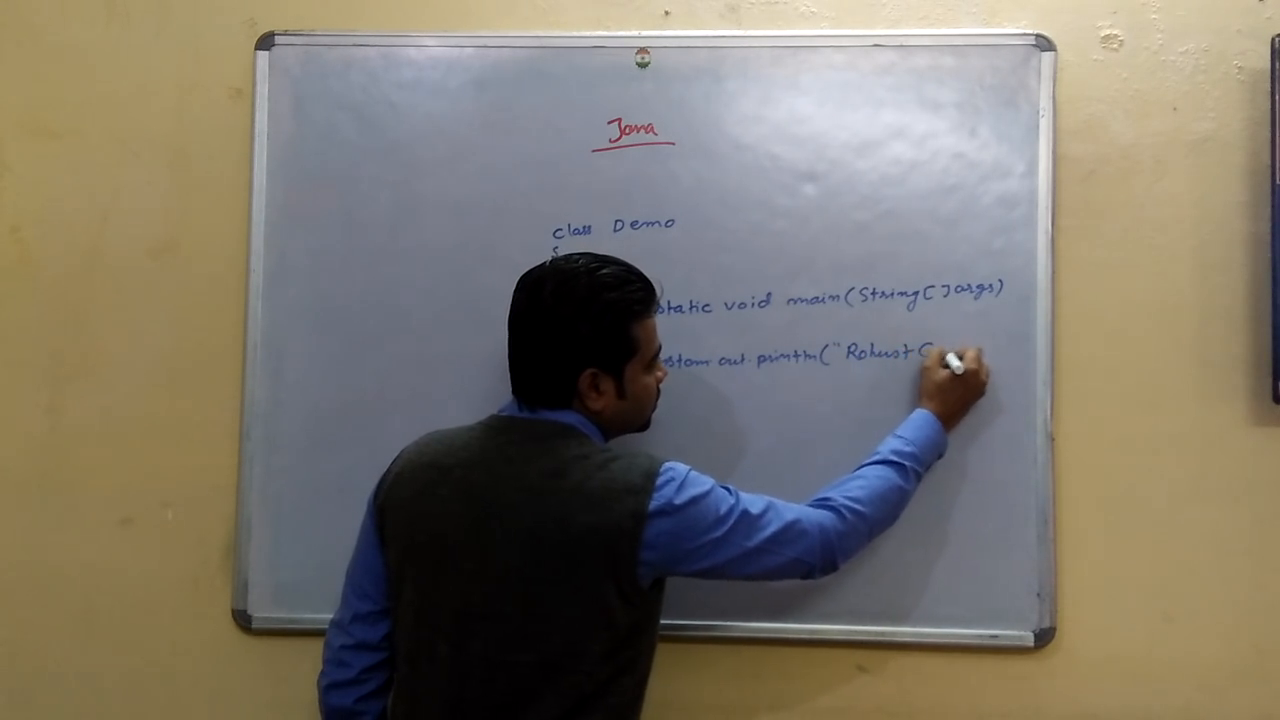 Java
class Demo
{
static void main(String[] args)
stom.out.println("Robust C